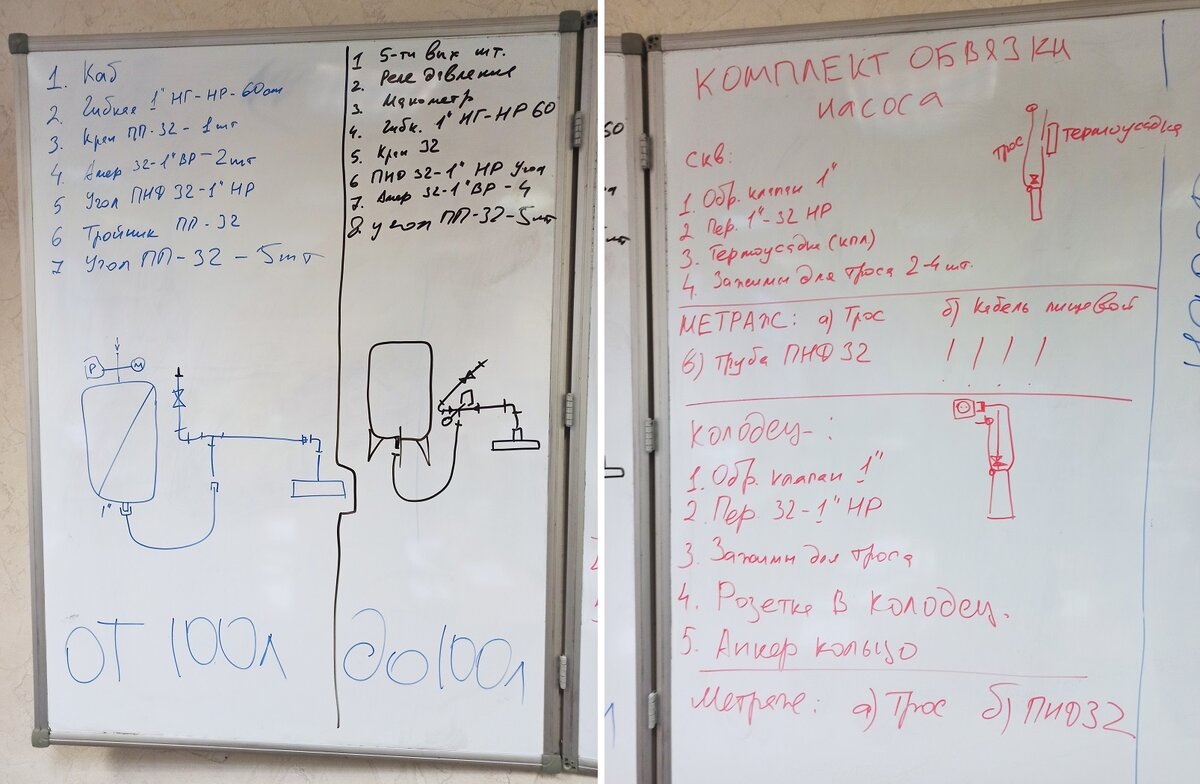 1. Каб
2. Гибкая 1" НГ-НР-60см
3. Креп ПП-32-1шт
4. Амер 32-1"ВР-2шт
5 Угол ПНФ 32-1" НР
6 Тройник ПП-32
7 Угол ПП-32-5шт
P
M
1"
ОТ 100л
1 5-ти вых шт.
2. Реле давления
3. Манометр
4. Гибк. 1" НГ-НР 60
5. Креп 32
6 ПНФ 32-1" НР Угол
7. Амер 32-1"ВР-4
8. угол ПП-32-5шт
до 100л
КОМПЛЕКТ ОБВЯЗКИ
насоса
трос
термоусадка
скв:
1. Обр. клапан 1"
2 Пер. 1"-32 НР
3. Термоусадка (кпл)
4. Зажимы для троса 2-4шт.
МЕТРАЖ: а) Трос б) Кабель пищевой
в) Труба ПНФ 32
КОЛОДЕЦ-:
1. Обр. клапан 1"
2. Пер. 32-1" НР
3. Зажимы для троса
4. Розетка в колодец.
5. Анкер кольцо
Метраж: а) Трос б) ПНФ32